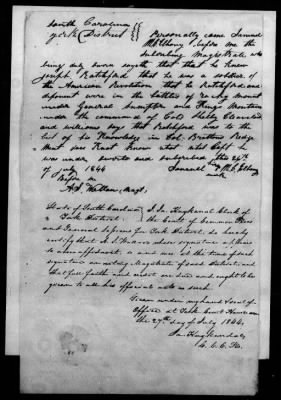 South Carolina
York District
Personally came Samuel
McElhany before me the
subscribing Magistrate who
being duly sworn sayeth that he knew
Joseph Rathford that he was a soldier of
the American Revolution that he Rathford and
deponent were in the battles of rocky mount
under General Sumpter and Kings Mountain
under the command of Cols Shelby Cleveland
and williams says that Rathford was to the
best of his knowledge in Col. Brattons Reg
but does not know what Capt. he
was under sworn and subscribed this 26th
of July 1844 Samuel McElhany
Before me mark
A. S. Wallace, Magt.
State of South Carolina I Jn Kuykendal Clerk of
York District the Court of Common Pleas
and General Sessions for York District do hereby
certify that A. S. Wallace whose signature appears
to above affidavit is and was at the time of said
signature an acting Magistrate of said District and
that full faith and credit are due and ought to be
given to all his official acts as such.
Given under my hand & seal of
Office at York Court House on
the 27th day of July 1844.
Jn Kuykendal
C. C. C. Pls.